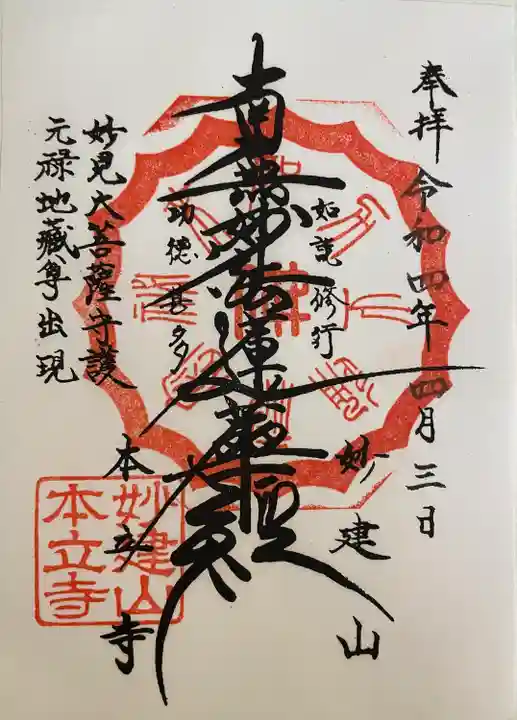 奉拝 令和四年 四月三日
如説修行
南無妙法蓮華経
功徳甚多
妙見大菩薩守護
元禄地蔵尊出現
妙建山
本立寺
妙建山
本立寺